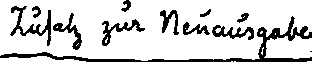 Zusatz zur Neuausgabe